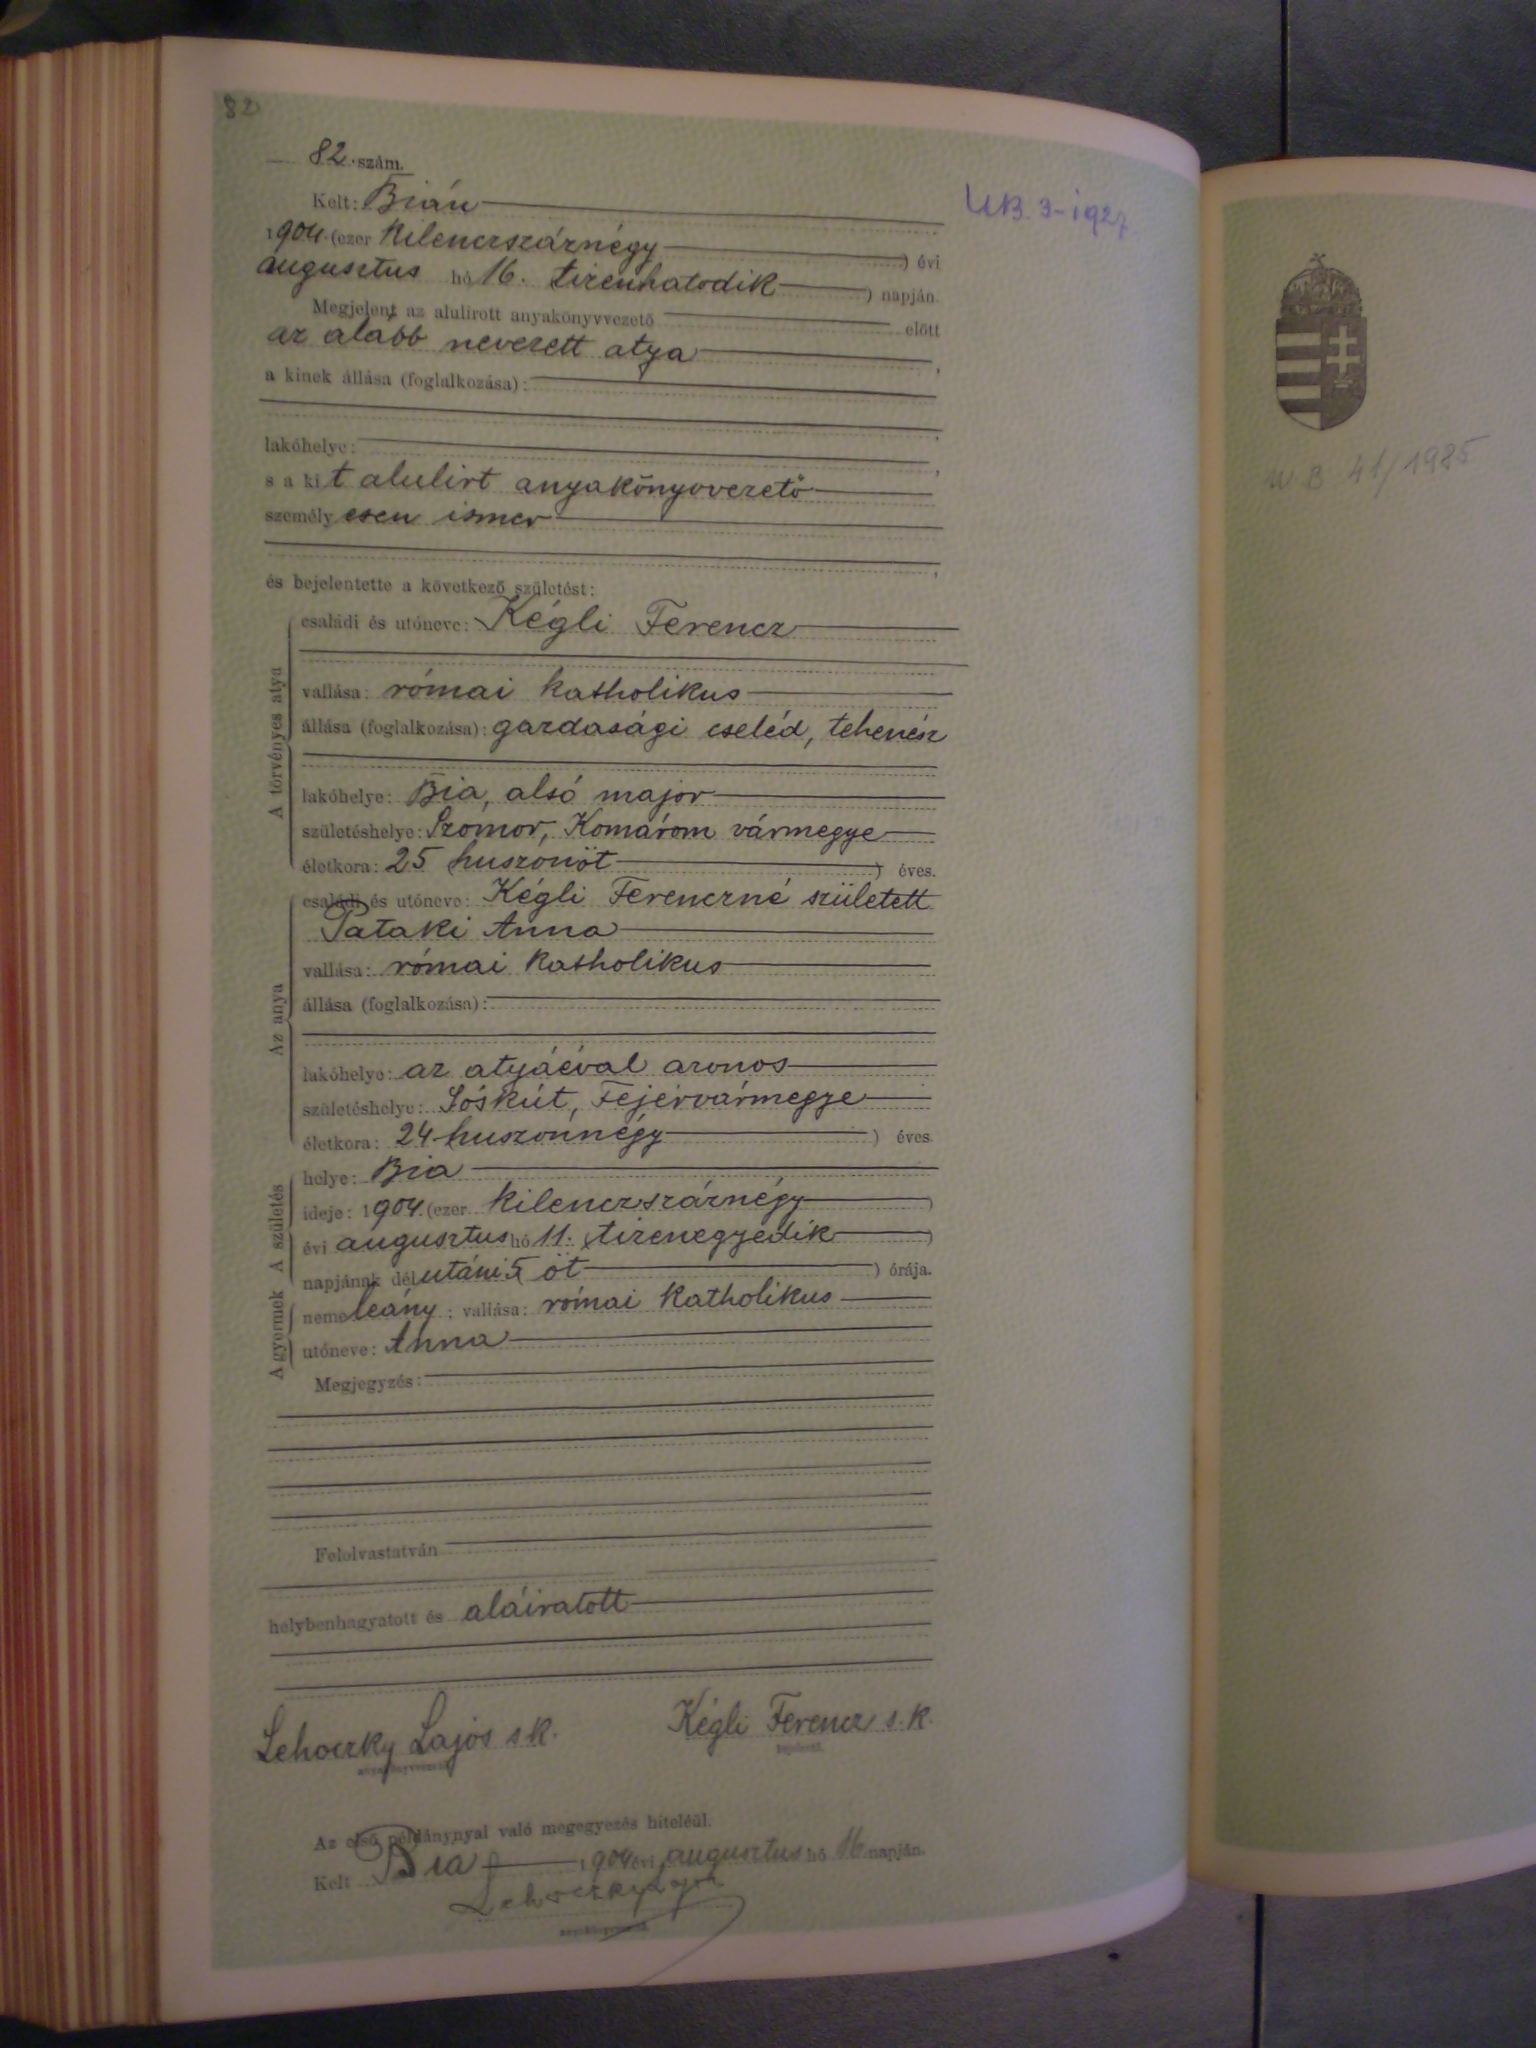 82
82. szám.
Kelt: Bián
1904. (ezer kilenczszáznégy) évi
augusztus hó 16. tizenhatodik) napján.
Megjelent az alulirott anyakönyvvezető előtt
az alább nevezett atya,
a kinek állása (foglalkozása):
lakóhelye:
s a kit alulirt anyakönyvvezető
személyesen ismer
és bejelentette a következő születést:
A törvényes atya
családi és utóneve: Kégli Ferencz
vallása: római katholikus
állása (foglalkozása): gazdasági cseléd, tehenész
lakóhelye: Bia, alsó major
születéshelye: Szomor, Komárom vármegye
életkora: 25 huszonöt) éves.
Az anya
családi és utóneve: Kégli Ferenczné született
Pataki Anna
vallása: római katholikus
állása (foglalkozása):
lakóhelye: az atyáéval azonos
születéshelye: Sóskút, Fejérvármegye
életkora: 24 huszonnégy) éves.
A születés
helye: Bia
ideje: 1904. (ezer kilenczszáznégy)
évi augusztus hó 11. tizenegyedik)
napjának délutáni 5 öt) órája.
A gyermek
neme leány; vallása: római katholikus
utóneve: Anna
Megjegyzés:
Felolvastatván
helybenhagyatott és aláiratott
Lehoczky Lajos s.k. Kégli Ferencz s.k.
anyakönyvvezető bejelentő.
Az első példánynyal való megegyezés hiteléül.
Kelt Bia 1904 évi augusztus hó 16 napján.
Lehoczky Lajos
anyakönyvvezető.
UB. 3-1927
UB 41/1985